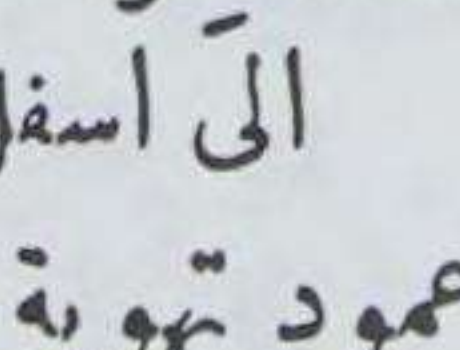 الى اسفل
عمود تهوية